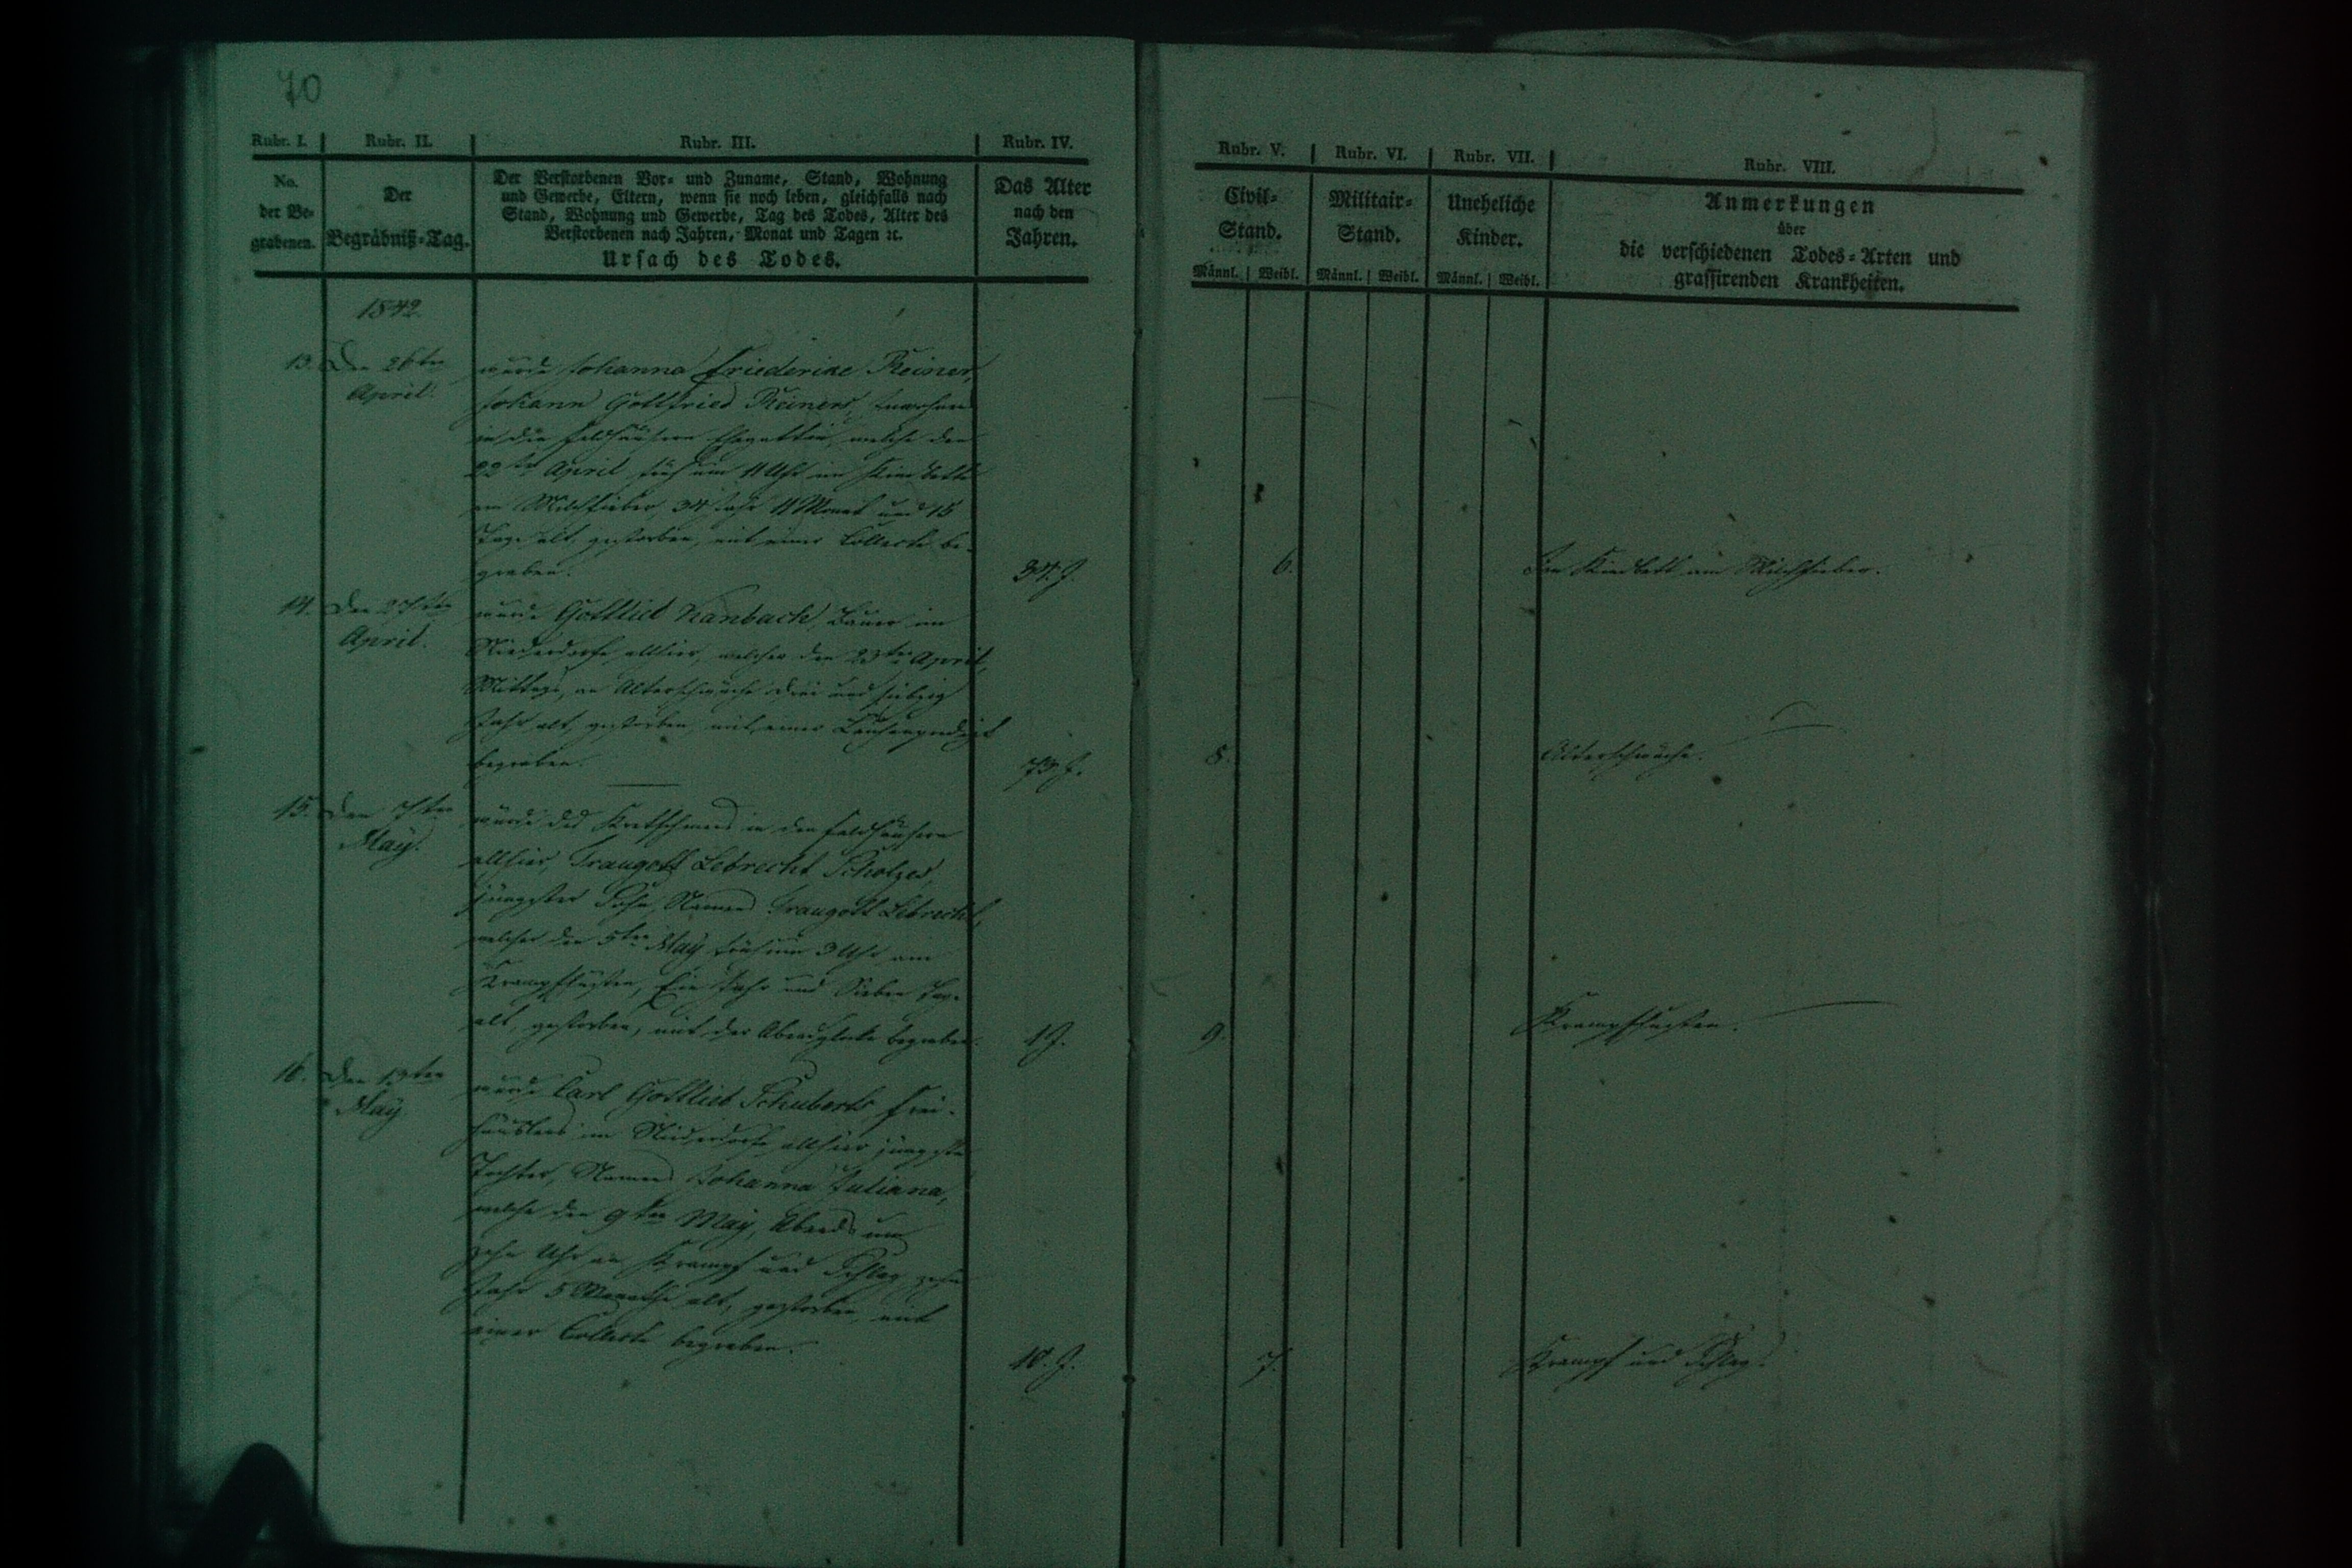 70
Rubr. I. Rubr. II. Rubr. III. Rubr. IV.
No. der Be- grabenen.
Der Begräbniß-Tag.
Der Verstorbenen Vor- und Zuname, Stand, Wohnung
und Gewerbe, Eltern, wenn sie noch leben, gleichfalls nach
Stand, Wohnung und Gewerbe, Tag des Todes, Alter des
Verstorbenen nach Jahren, Monat und Tagen ꝛc.
Ursach des Todes.
Das Alter
nach den
Jahren.
1842.
13. Den 26ten
April.
wurde Johanna Friederike Reiner,
Johann Gottfried Reiners,
in den Feldhäusern Ehegattin, welche den
22ten April, früh um 11 Uhr im Kindbette
am Milchfieber, 34 Jahr 11 Monat und 15
Tage alt, gestorben, mit einer Collecte be-
graben.
34. J.
14. Den 27ten
April.
wurde Gottlieb Hanbach, Bauer im
Niederdorfe allhier, welcher den 23ten April,
Mittags, an Alterschwäche drei und siebzig
Jahr alt, gestorben, mit einer Leichenpredigt
begraben.
73. J.
15. Den 7ten
May.
wurde des Kretschmers in den Feldhäusern
allhier, Traugott Lebrecht Scholzes,
jüngster Sohn, Namens Traugott Lebrecht,
welcher den 5ten May früh um 3 Uhr am
Krampfhusten, Ein Jahr und Sieben Tage
alt, gestorben, mit der Abendglocke begraben.
1 J.
16. Den 13ten
May.
wurde Carl Gottlieb Schuberts, Frei-
häuslers im Niederdorfe allhier jüngste
Tochter, Namens Johanna Juliana,
welche den 9ten May, Abends um
zehn Uhr an Krampf und Schlag, zehn
Jahr 5 Monathe alt, gestorben, mit
einer Collecte begraben.
10. J.
Rubr. V. Rubr. VI. Rubr. VII. Rubr. VIII.
Civil-
Stand.
Militair-
Stand.
Uneheliche
Kinder.
Männl. Weibl. Männl. Weibl. Männl. Weibl.
Anmerkungen
über
die verschiedenen Todes-Arten und
grassirenden Krankheiten.
6. Im Kindbett am Milchfieber.
8. Alterschwäche.
9. Krampfhusten.
7. Krampf und Schlag.